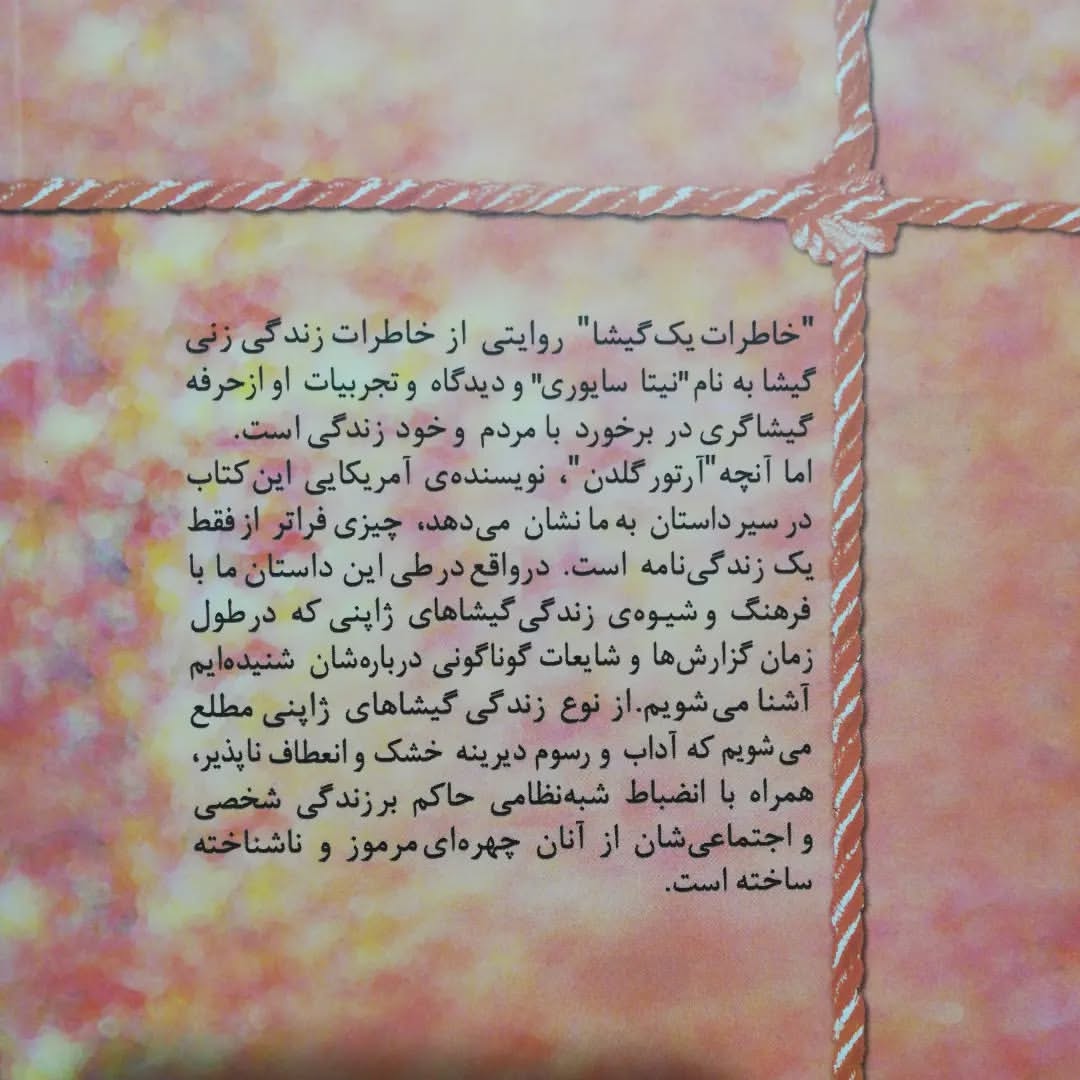 "خاطرات یک گیشا" روایتی از خاطرات زندگی زنی
گیشا به نام "نیتا سایوری" و دیدگاه و تجربیات او از حرفه
گیشاگری در برخورد با مردم و خود زندگی است.
اما آنچه "آرتور گلدن"، نویسنده‌ی آمریکایی این کتاب
در سیر داستان به ما نشان می‌دهد، چیزی فراتر از فقط
یک زندگی‌نامه است. درواقع در طی این داستان ما با
فرهنگ و شیوه‌ی زندگی گیشاهای ژاپنی که در طول
زمان گزارش‌ها و شایعات گوناگونی درباره‌شان شنیده‌ایم
آشنا می‌شویم. از نوع زندگی گیشاهای ژاپنی مطلع
می‌شویم که آداب و رسوم دیرینه خشک و انعطاف ناپذیر،
همراه با انضباط شبه‌نظامی حاکم بر زندگی شخصی
و اجتماعی‌شان از آنان چهره‌ای مرموز و ناشناخته
ساخته است.